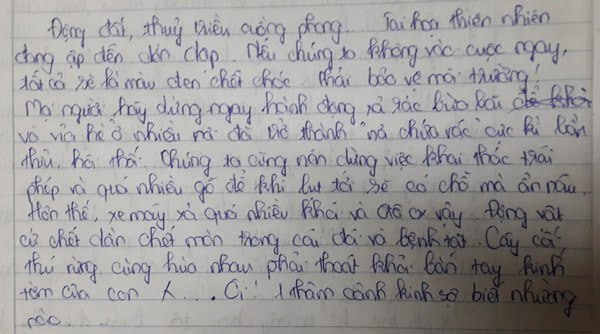 Động đất, thuỷ triều cuồng phong... Tai hoạ thiên nhiên
đang ập đến dồn dập. Nếu chúng ta không vào cuộc ngay,
tất cả sẽ là màu đen chết chóc. Phải bảo vệ môi trường!
Mọi người hãy dừng ngay hành động xả rác bừa bãi
vỉa hè ở nhiều nơi đã trở thành "nơi chứa rác" cực kì bẩn
thỉu, hôi thối. Chúng ta cũng nên dừng việc khai thác trái
phép và quá nhiều gỗ để khi lụt tới sẽ có chỗ mà ẩn náu.
Hơn thế, xe máy xả quá nhiều khói và vậy. Động vật
cứ chết dần chết mòn trong cái đói và bệnh tật. Cây cối,
thú rừng cùng hùa nhau phải thoát khỏi bàn tay kinh
tởm của con .... 1 thảm cảnh kinh sợ biết nhường
nào.....